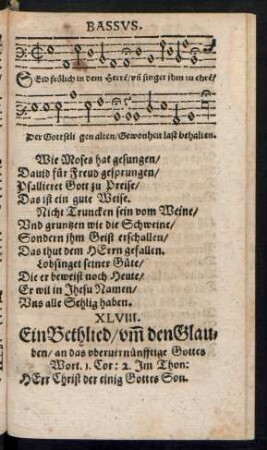 BASSVS.
SEid frölich in dem Herrē/ vñ singet ihm zu ehrē/
Der Gottseligen alten/ Gewonheit last behalten.
Wie Moses hat gesungen/
Dauid für Freud gesprungen/
Psallieret Gott zu Preise/
Das ist ein gute Weise.
Nicht Truncken sein vom Weine/
Vnd gruntzen wie die Schweine/
Sondern jhm Geist erschallen/
Das thut dem HErrn gefallen.
Lobsinget seiner Güte/
Die er beweist noch Heute/
Er wil in Jhesu Namen/
Vns alle Sehlig haben.
XLVIII.
Ein Bethlied/ vm̄ den Glau-
ben/ an das vberuernünfftige Gottes
Wort. 1. Cor: 2. Im Thon:
HErr Christ der einig Gottes Son.